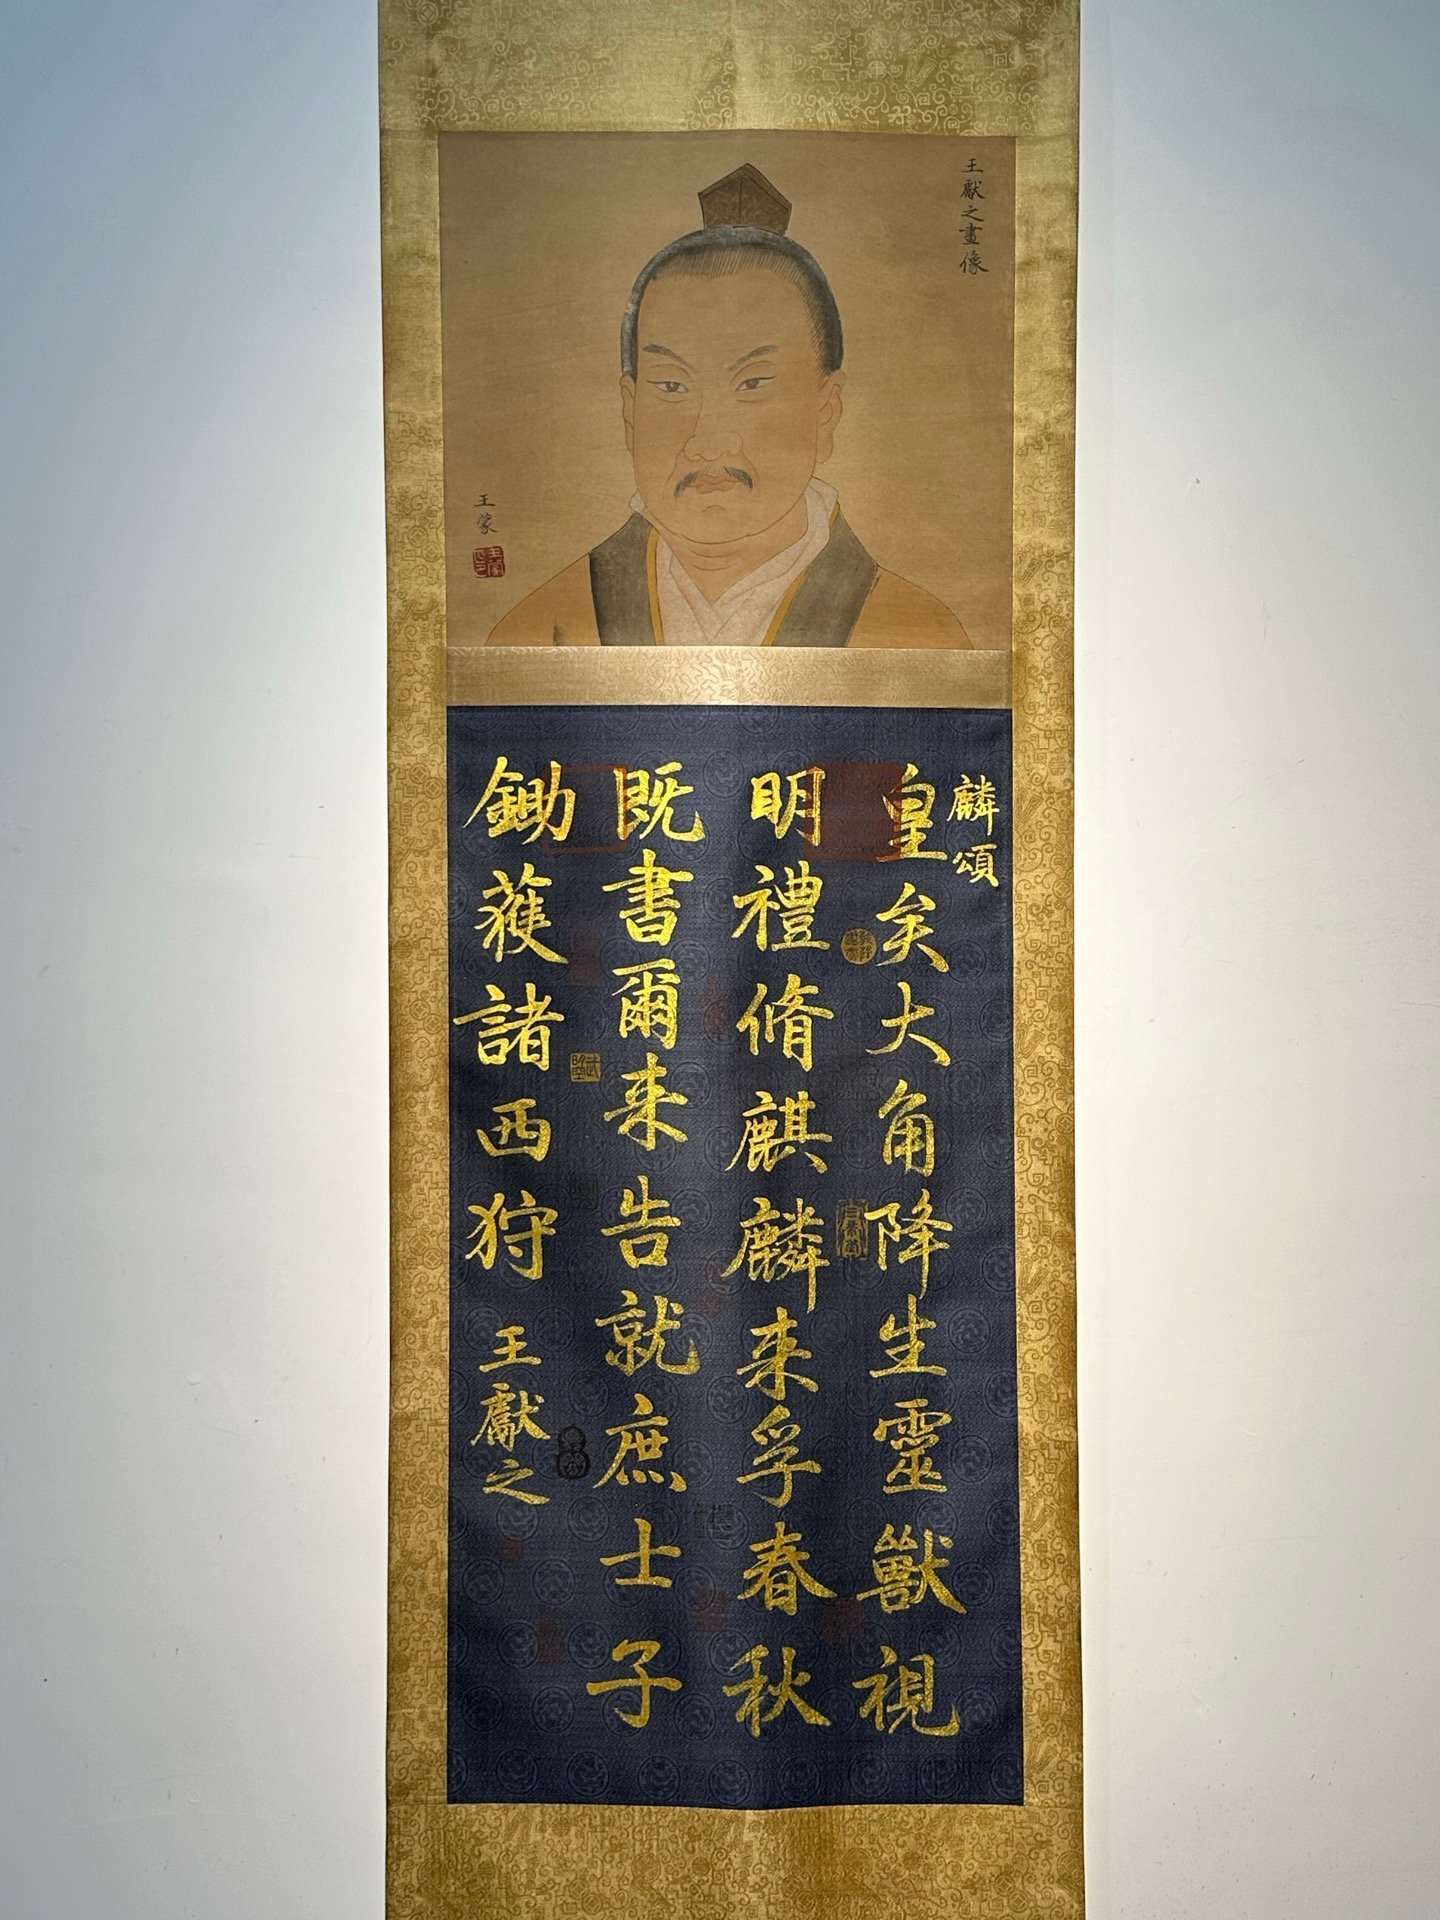 王獻之畫像
王蒙
麟頌
皇矣大角降生靈獸視
明禮脩麒麟来孚春秋
既書爾来告就庶士子
鋤蓛諸西狩
王獻之